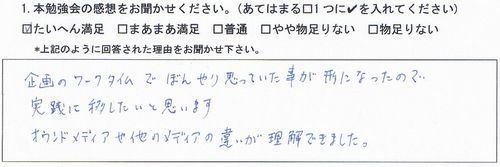 1. 本勉強会の感想をお聞かせください。(あてはまる□1つに✔を入れてください)
☑たいへん満足 □まあまあ満足 □普通 □やや物足りない □物足りない
*上記のように回答された理由をお聞かせ下さい。
企画のワークタイムでぼんやり思っていた事が形になったので
実践に移したいと思います
オウンドメディアや他のメディアの違いが理解できました。